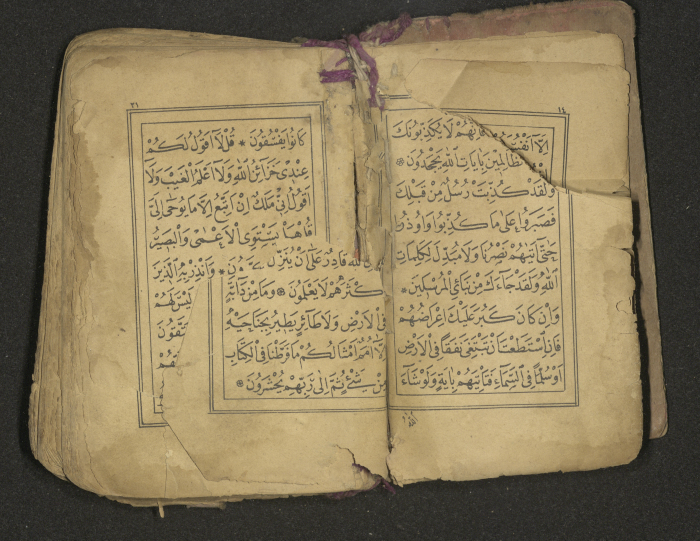 اِلَّآ اَنْفُسَ
فَاِنَّهُمْ لَا يُكَذِّبُونَكَ
الظَّالِمِينَ بِاٰيَاتِ اللّٰهِ يَجْحَدُونَ
وَلَقَدْ كُذِّبَتْ رُسُلٌ مِنْ قَبْلِكَ
فَصَبَرُوا عَلٰى مَا كُذِّبُوا وَاُوذُوا
حَتّٰى اَتٰيهُمْ نَصْرُنَا وَلَا مُبَدِّلَ لِكَلِمَاتِ
اللّٰهِ وَلَقَدْ جَاءَكَ مِنْ نَبَاِى الْمُرْسَلِينَ
وَاِنْ كَانَ كَبُرَ عَلَيْكَ اِعْرَاضُهُمْ
فَاِنِ اسْتَطَعْتَ اَنْ تَبْتَغِىَ نَفَقًا فِى الْاَرْضِ
اَوْ سُلَّمًا فِى السَّمَاءِ فَتَاْتِيَهُمْ بِاٰيَةٍ وَلَوْ شَاءَ
اللّٰه
اللّٰهَ قَادِرٌ عَلٰى اَنْ يُنَزِّلَ
كْثَرَهُمْ لَا يَعْلَمُونَ وَمَا مِنْ دَابَّةٍ
فِى الْاَرْضِ وَلَا طَائِرٍ يَطِيرُ بِجَنَاحَيْهِ
اِلَّا اُمَمٌ اَمْثَالُكُمْ مَا فَرَّطْنَا فِى الْكِتَابِ
مِنْ شَيْءٍ ثُمَّ اِلٰى رَبِّهِمْ يُحْشَرُونَ
كَانُوا يَفْسُقُونَ قُلْ لَا اَقُولُ لَكُمْ
عِنْدِى خَزَائِنُ اللّٰهِ وَلَا اَعْلَمُ الْغَيْبَ وَلَا
اَقُولُ اِنِّى مَلَكٌ اِنْ اَتَّبِعُ اِلَّا مَا يُوحٰى اِلَىَّ
قُلْ هَلْ يَسْتَوِى الْاَعْمٰى وَالْبَصِيرُ
ونَ وَاَنْذِرْ بِهِ الَّذِينَ
لَيْسَ لَهُمْ
يَتَّقُونَ